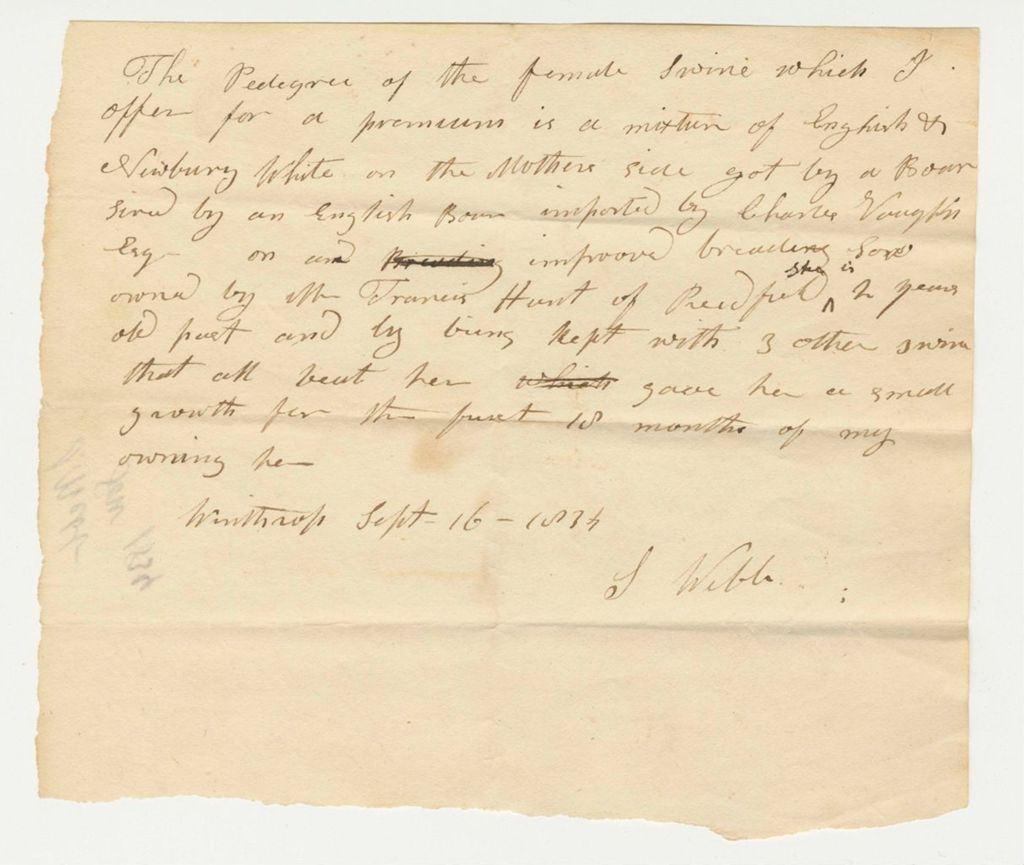 The Pedegree of the female Swine which I
offer for a premium is a mixture of English &
Newbury White on the Mothers side got by a Boar
sired by an English Boar imported by Charles Vaughn
Esq - on an improved breading Sow
she is
owned by Mr Francis Hunt of Readfield ^ 2 years
old past and by being kept with 3 other swine
that all beat her gave her a small
growth for the furst 18 months of my
owning her
Winthrop Sept - 16 - 1834
S Webb
1834